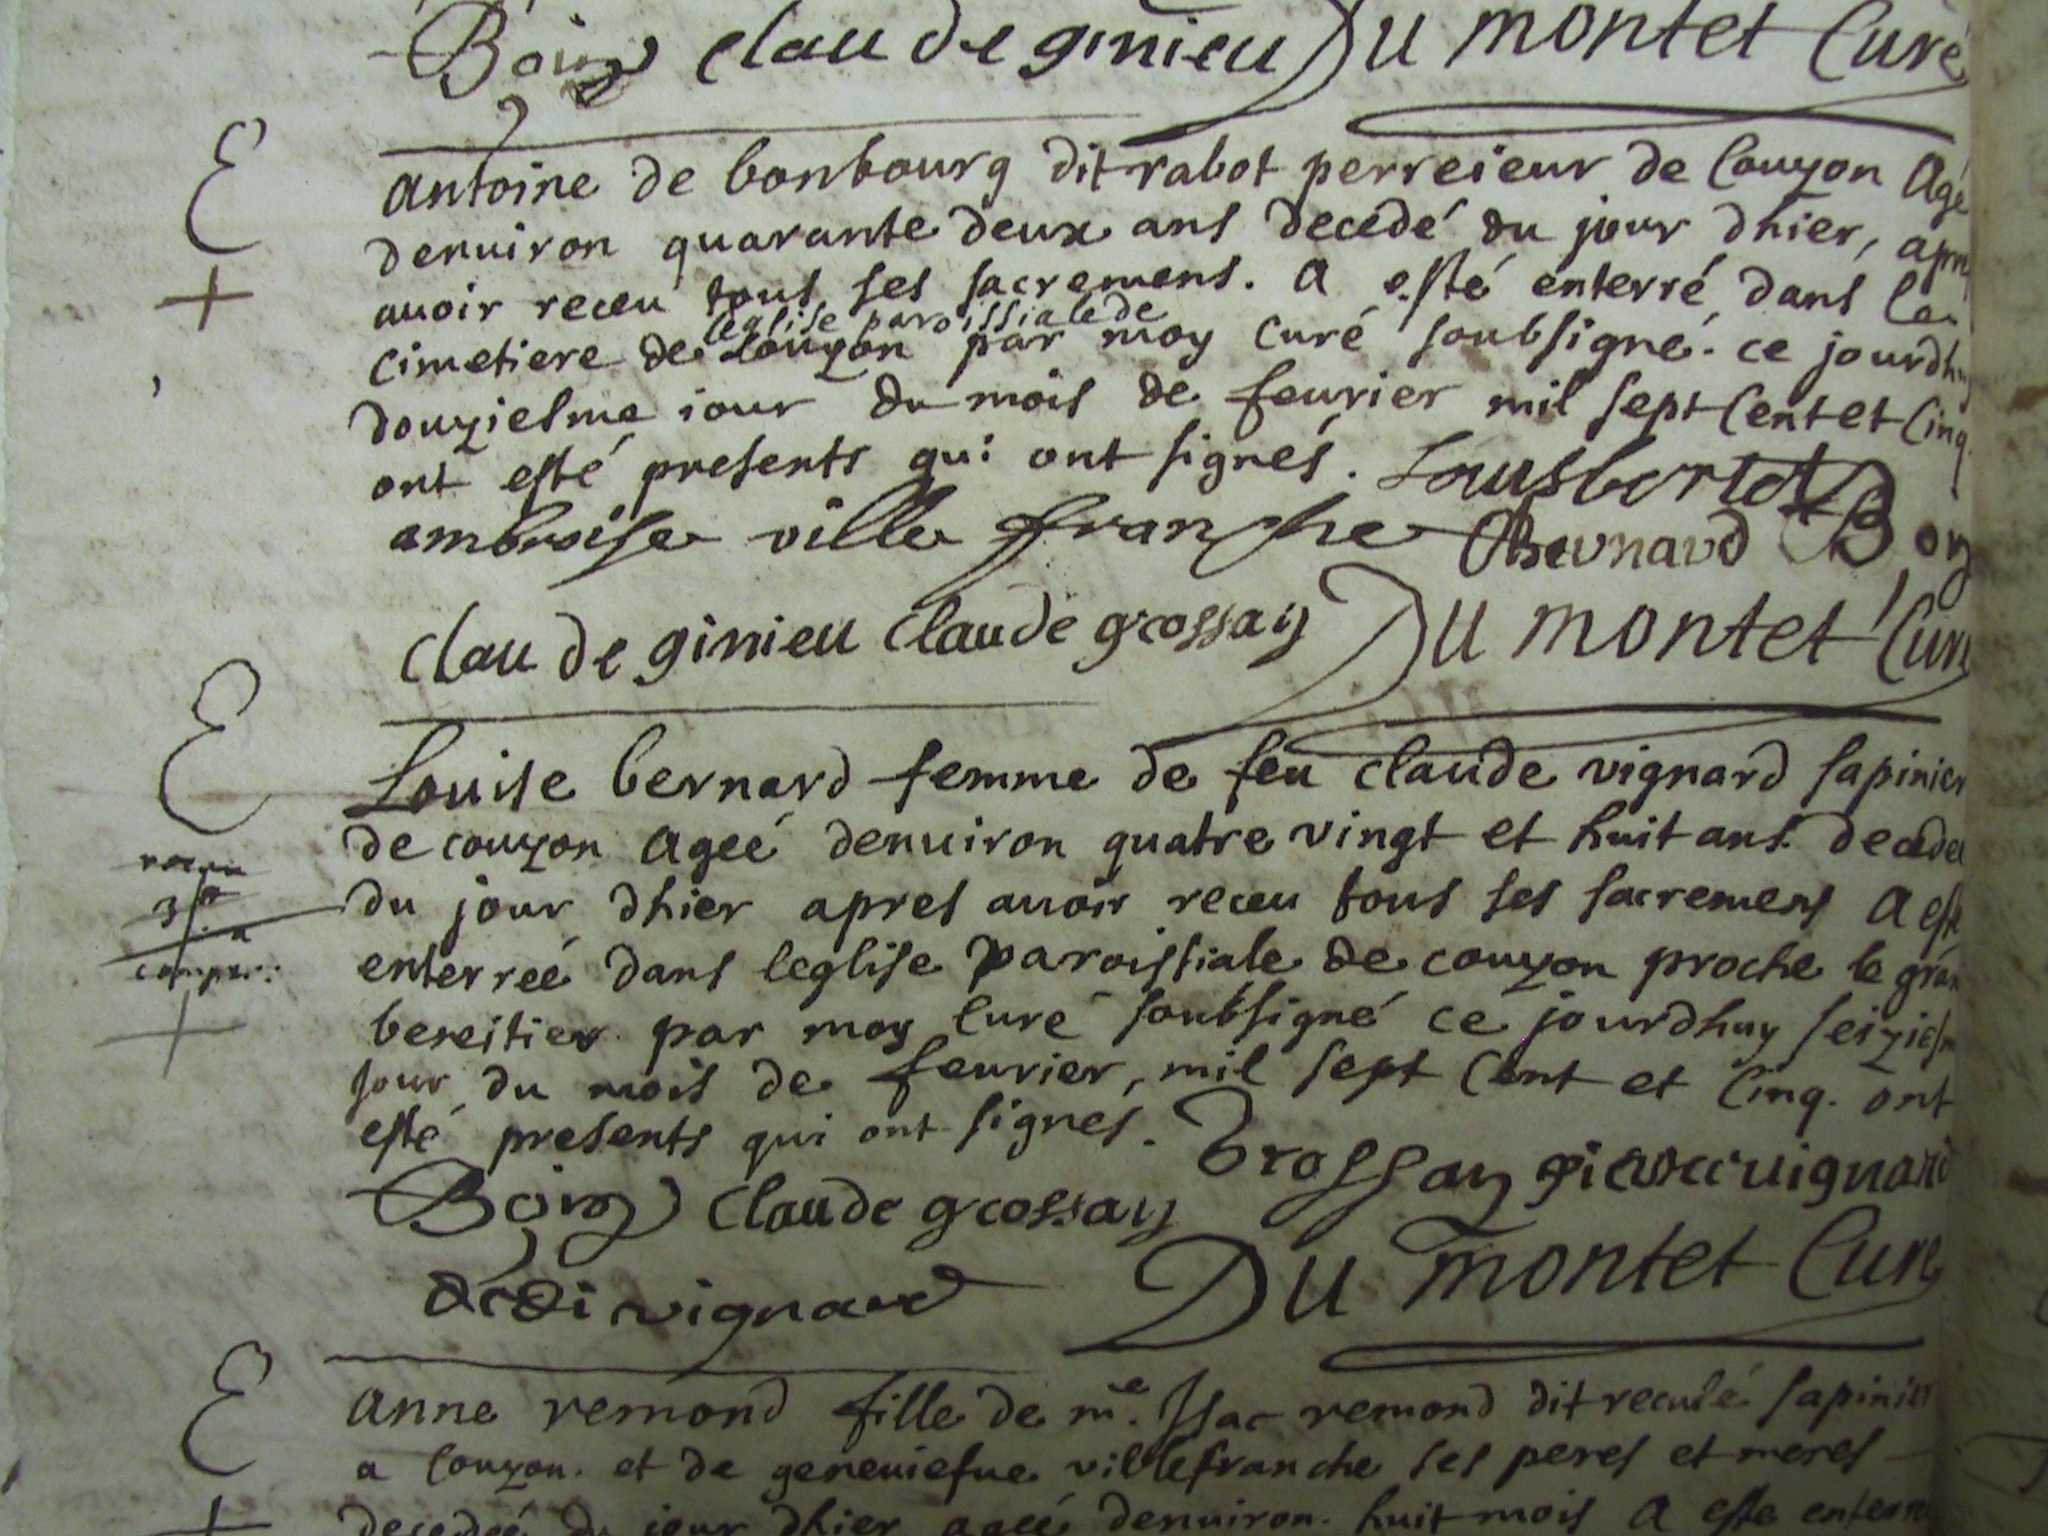 Boiny claude ginieu Du montet Curé
E
antoine de bonbourg dit rabot perreieur de Couzon Agé
denuiron quarante deux ans decedé du jour dhier, apres
auoir receu tous ses sacremens. A esté enterré dans le
leglise paroissiale de
cimetiere de Couzon par moy Curé soubsigné. ce jourdhuy
douziesme iour du mois de feurier mil sept Cent et Cinq
ont esté presents qui ont signés. Louis bertet
ambroise ville franche Bernard Bony
claude ginieu claude grossay Du montet Curé
E
Louise bernard femme de feu claude vignard sapinier
de couzon Ageé denuiron quatre vingt et huit ans. decedeé
du jour dhier apres auoir receu tous ses sacremens A esté
enterreé dans leglise paroissiale de couzon proche le gran
beneitier par moy Curé soubsigné ce jourdhuy seiziesme
jour du mois de feurier, mil sept Cent et Cinq. ont
esté presents qui ont signés. Brossay vignard
Boiny claude grossay
vignard Du montet Curé
E
Anne remond fille de me. Isac remond dit reculé sapinier
a Couzon. et de geneuiefue villefranche ses peres et meres
decedeé du jour dhier ageé denuiron. huit mois A esté enterreé